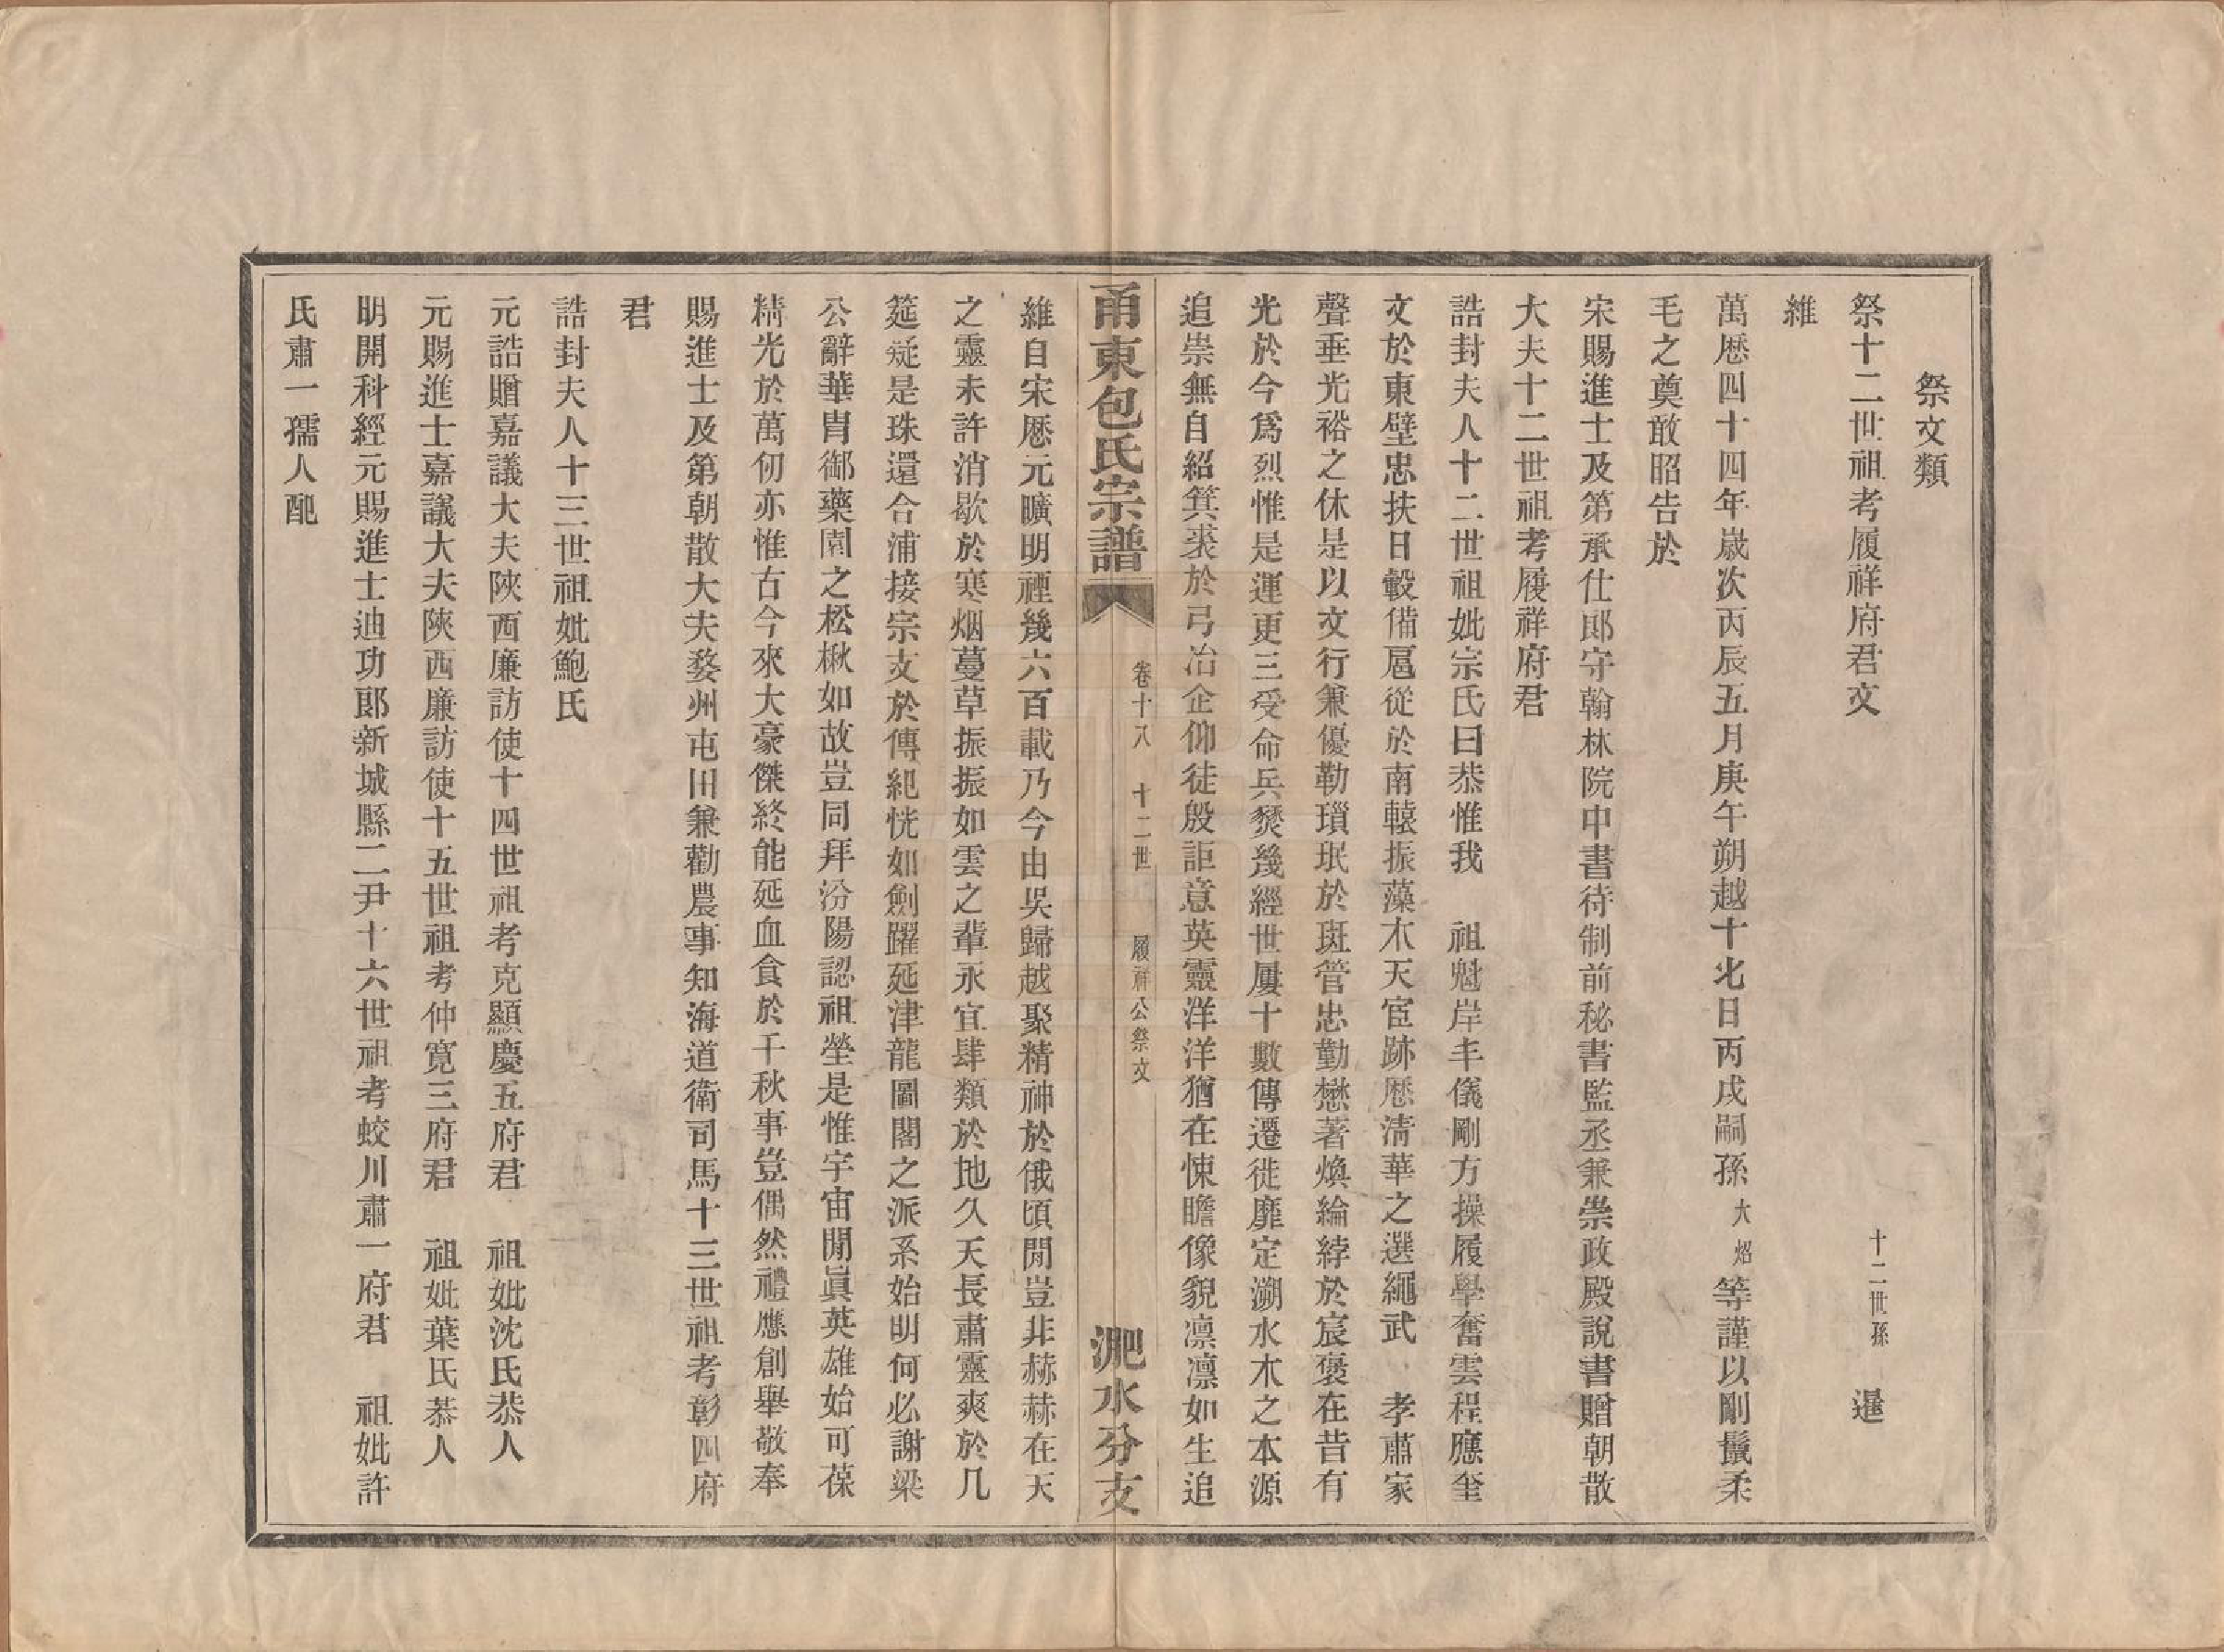 祭文類
祭十二世祖考履祥府君文 十二世孫 暹
維
萬厯四十四年歲次丙辰五月庚午朔越十七日丙戌嗣孫大炤等謹以剛鬣柔
毛之奠敢昭告於
宋賜進士及第承仕郎守翰林院中書待制前秘書監丞兼崇政殿說書贈朝散
大夫十二世祖考履祥府君
誥封夫人十二世祖妣宗氏曰恭惟我 祖魁岸丰儀剛方操履學奮雲程應奎
文於東壁忠扶日轂備扈從於南轅振藻木天宦跡厯淸華之選繩武 孝肅家
聲垂光裕之休是以文行兼優勒瑣珉於斑管忠勤懋著煥綸綍於宸褒在昔有
光於今爲烈惟是運更三受命兵燹幾經世屢十數傳遷徙靡定溯水木之本源
追崇無自紹箕裘於弓冶企仰徒殷詎意英靈洋洋猶在悚瞻像貌凛凛如生追
甬東包氏宗譜 卷十八 十二世 履祥公祭文 淝水分支
維自宋厯元曠明禋幾六百載乃今由吳歸越聚精神於俄頃間豈非赫赫在天
之靈未許消歇於寒烟蔓草振振如雲之輩永宜肆類於地久天長肅靈爽於几
筵疑是珠還合浦接宗支於傳紀恍如劍躍延津龍圖閣之派系始明何必謝梁
公辭華胄御藥園之松楸如故豈同拜汾陽認祖塋是惟宇宙閒眞英雄始可葆
精光於萬仞亦惟古今來大豪傑終能延血食於千秋事豈偶然禮應創舉敬奉
賜進士及第朝散大夫婺州屯田兼勸農事知海道衛司馬十三世祖考彰四府
君
誥封夫人十三世祖妣鮑氏
元誥贈嘉議大夫陝西廉訪使十四世祖考克顯慶五府君 祖妣沈氏恭人
元賜進士嘉議大夫陝西廉訪使十五世祖考仲寬三府君 祖妣葉氏恭人
明開科經元賜進士迪功郎新城縣二尹十六世祖考蛟川肅一府君 祖妣許
氏肅一孺人配